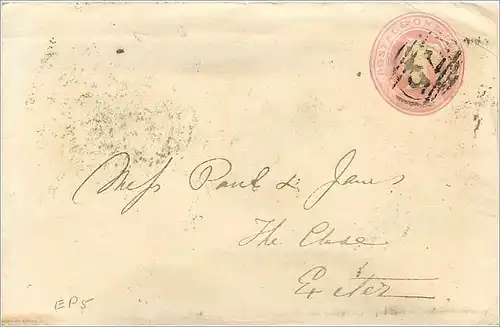 POSTAGE ONE
Mess Paul & James
The Close
Exeter
EP5